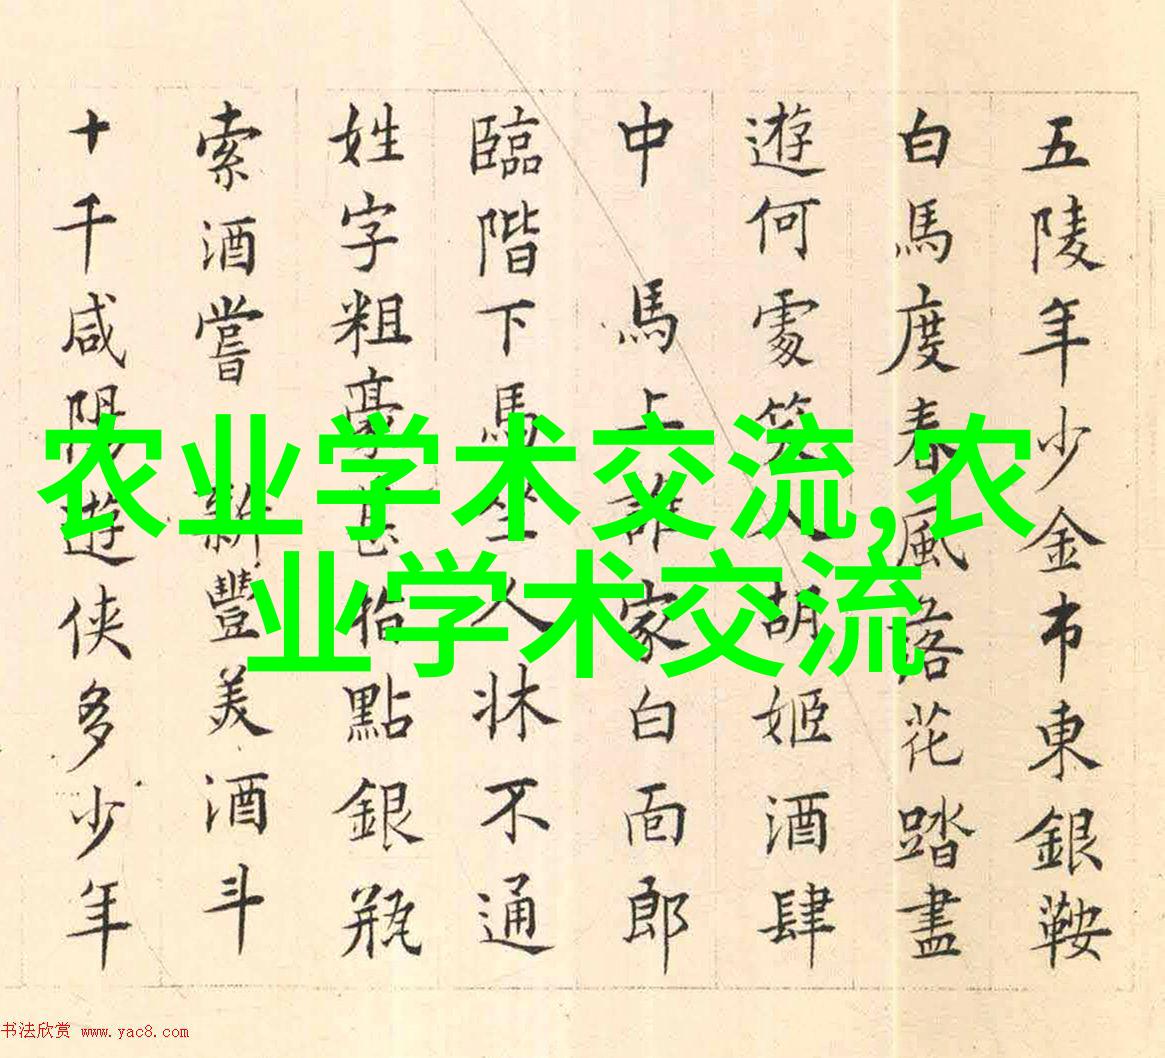 五陵年少金市東銀鞍
白馬度春風落花踏盡
遊何處笑入胡姬酒肆
中 馬上誰家白面郎
臨階下馬坐人牀不通
姓字粗豪甚指點銀瓶
索酒嘗 新豐美酒斗
十千咸陽遊俠多少年
农业学术交流,农
业学术交流
书法欣赏 www.yac8.com